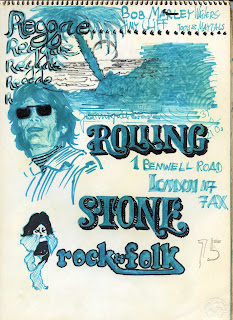 Reggae
Reggae
Reggae
Reggae
Reggae
BOB MARLEY WAILERS
JIMMY CLIFF TOOTS MAYTALS
ROLLING
1 BENWELL ROAD
LONDON N7
7AX
STONE
rock & folk
75